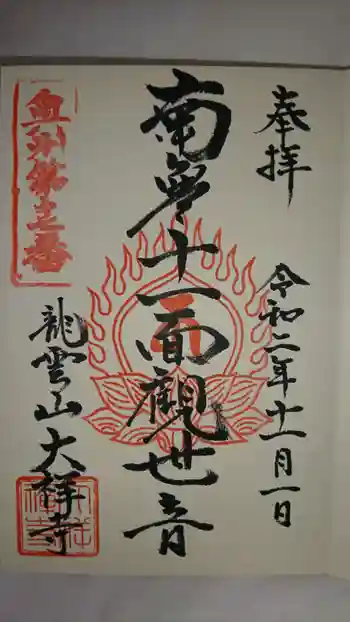 奉拝
令和二年十一月一日
南無十一面観世音
龍雲山大祥寺